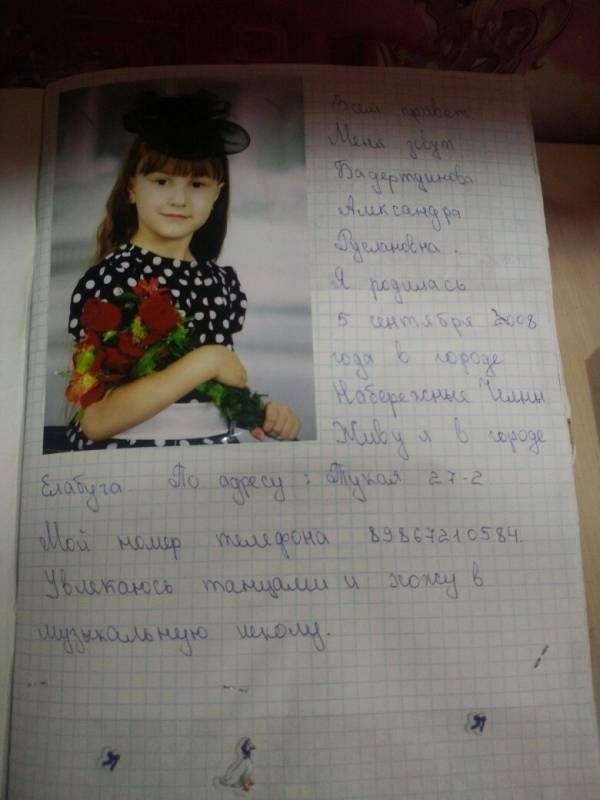 Всем привет
Меня зовут
Бадертдинова
Александра
Руслановна.
Я родилась
5 сентября 2008
года в городе
Набережные Челны
Живу я в городе
Елабуга По адресу: Тукая 27-2
Мой номер телефона 89867210584.
Увлекаюсь танцами и хожу в
музыкальную школу.